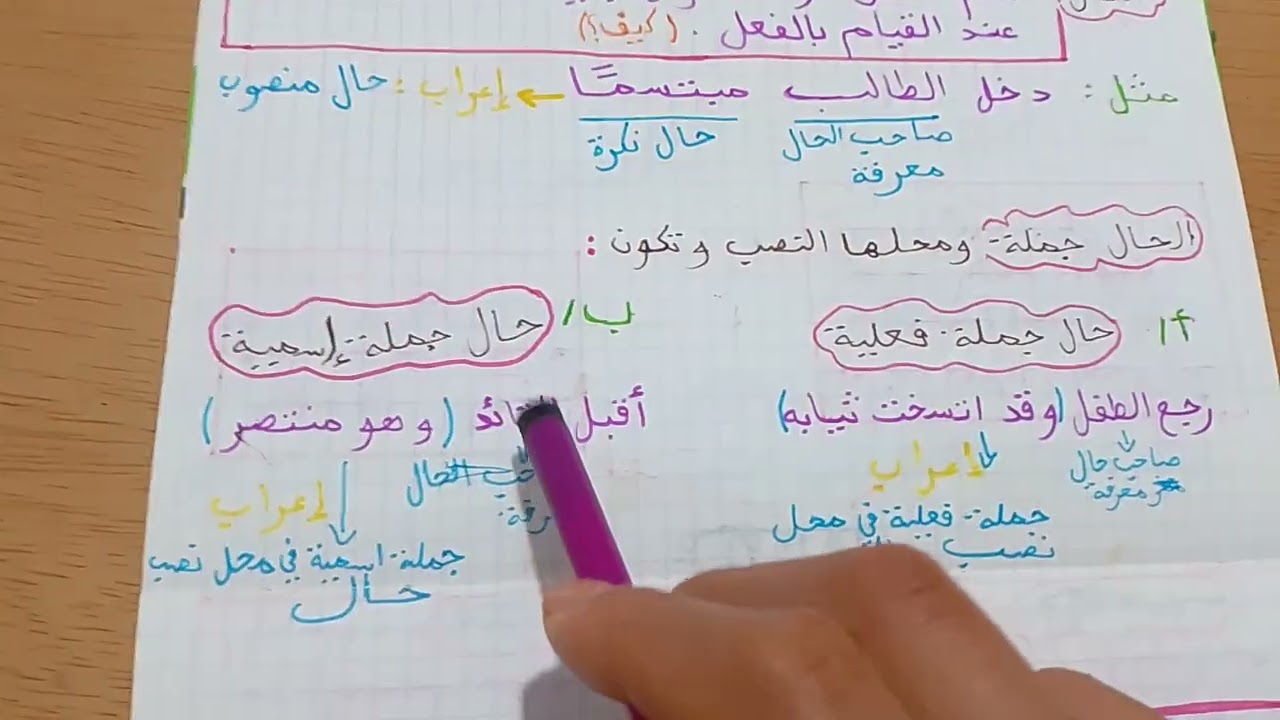 عند القيام بالفعل . (كيف؟)
مثل : دخل الطالب مبتسمًا ← إعراب : حال منصوب
صاحب الحال
معرفة
حال نكرة
الحال جملة ومحلها النصب وتكون :
أ/ حال جملة فعلية
رجع الطفل (وقد اتسخت ثيابه)
صاحب حال
معرفة
إعراب
جملة فعلية في محل
نصب
ب/ حال جملة إسمية
أقبل القائد (وهو منتصر)
الحال
إعراب
جملة اسمية في محل نصب
حال